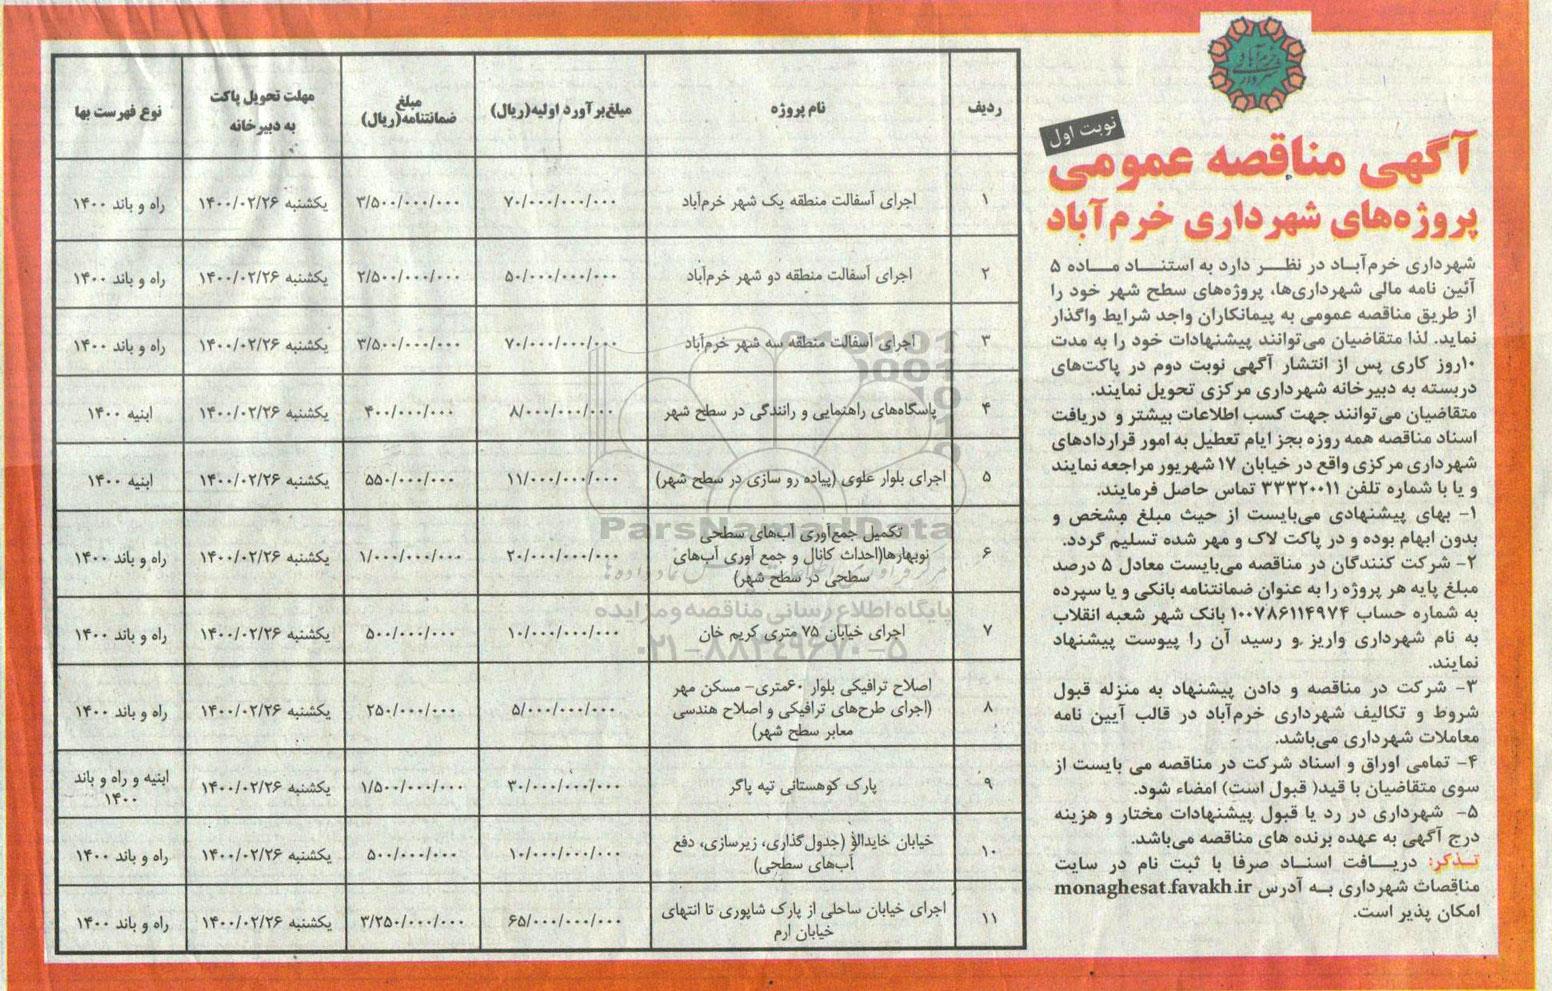 شهرداری خرم‌آباد
نوبت اول
آگهی مناقصه عمومی
پروژه‌های شهرداری خرم‌آباد
شهرداری خرم‌آباد در نظر دارد به استناد ماده ۵
آئین نامه مالی شهرداری‌ها، پروژه‌های سطح شهر خود را
از طریق مناقصه عمومی به پیمانکاران واجد شرایط واگذار
نماید. لذا متقاضیان می‌توانند پیشنهادات خود را به مدت
۱۰روز کاری پس از انتشار آگهی نوبت دوم در پاکت‌های
دربسته به دبیرخانه شهرداری مرکزی تحویل نمایند.
متقاضیان می‌توانند جهت کسب اطلاعات بیشتر و دریافت
اسناد مناقصه همه روزه بجز ایام تعطیل به امور قراردادهای
شهرداری مرکزی واقع در خیابان ۱۷ شهریور مراجعه نمایند
و یا با شماره تلفن ۳۳۳۲۰۰۱۱ تماس حاصل فرمایند.
۱- بهای پیشنهادی می‌بایست از حیث مبلغ مشخص و
بدون ابهام بوده و در پاکت لاک و مهر شده تسلیم گردد.
۲- شرکت کنندگان در مناقصه می‌بایست معادل ۵ درصد
مبلغ پایه هر پروژه را به عنوان ضمانتنامه بانکی و یا سپرده
به شماره حساب ۱۰۰۷۸۶۱۱۴۹۷۴ بانک شهر شعبه انقلاب
به نام شهرداری واریز و رسید آن را پیوست پیشنهاد
نمایند.
۳- شرکت در مناقصه و دادن پیشنهاد به منزله قبول
شروط و تکالیف شهرداری خرم‌آباد در قالب آیین نامه
معاملات شهرداری می‌باشد.
۴- تمامی اوراق و اسناد شرکت در مناقصه می بایست از
سوی متقاضیان با قید( قبول است) امضاء شود.
۵- شهرداری در رد یا قبول پیشنهادات مختار و هزینه
درج آگهی به عهده برنده های مناقصه می‌باشد.
تذکر: دریافت اسناد صرفا با ثبت نام در سایت
مناقصات شهرداری به آدرس monaghesat.favakh.ir
امکان پذیر است.
ردیف نام پروژه مبلغ‌برآورد اولیه(ریال) مبلغ ضمانتنامه(ریال) مهلت تحویل پاکت به دبیرخانه نوع فهرست بها
۱ اجرای آسفالت منطقه یک شهر خرم‌آباد ۷۰/۰۰۰/۰۰۰/۰۰۰ ۳/۵۰۰/۰۰۰/۰۰۰ یکشنبه ۱۴۰۰/۰۲/۲۶ راه و باند ۱۴۰۰
۲ اجرای آسفالت منطقه دو شهر خرم‌آباد ۵۰/۰۰۰/۰۰۰/۰۰۰ ۲/۵۰۰/۰۰۰/۰۰۰ یکشنبه ۱۴۰۰/۰۲/۲۶ راه و باند ۱۴۰۰
۳ اجرای آسفالت منطقه سه شهر خرم‌آباد ۷۰/۰۰۰/۰۰۰/۰۰۰ ۳/۵۰۰/۰۰۰/۰۰۰ یکشنبه ۱۴۰۰/۰۲/۲۶ راه و باند ۱۴۰۰
۴ پاسگاه‌های راهنمایی و رانندگی در سطح شهر ۸/۰۰۰/۰۰۰/۰۰۰ ۴۰۰/۰۰۰/۰۰۰ یکشنبه ۱۴۰۰/۰۲/۲۶ ابنیه ۱۴۰۰
۵ اجرای بلوار علوی (پیاده رو سازی در سطح شهر) ۱۱/۰۰۰/۰۰۰/۰۰۰ ۵۵۰/۰۰۰/۰۰۰ یکشنبه ۱۴۰۰/۰۲/۲۶ ابنیه ۱۴۰۰
۶ تکمیل جمع‌آوری آب‌های سطحی
نوبهارها(احداث کانال و جمع آوری آب‌های
سطحی در سطح شهر) ۲۰/۰۰۰/۰۰۰/۰۰۰ ۱/۰۰۰/۰۰۰/۰۰۰ یکشنبه ۱۴۰۰/۰۲/۲۶ راه و باند ۱۴۰۰
۷ اجرای خیابان ۷۵ متری کریم خان ۱۰/۰۰۰/۰۰۰/۰۰۰ ۵۰۰/۰۰۰/۰۰۰ یکشنبه ۱۴۰۰/۰۲/۲۶ راه و باند ۱۴۰۰
۸ اصلاح ترافیکی بلوار ۶۰متری- مسکن مهر
(اجرای طرح‌های ترافیکی و اصلاح هندسی
معابر سطح شهر) ۵/۰۰۰/۰۰۰/۰۰۰ ۲۵۰/۰۰۰/۰۰۰ یکشنبه ۱۴۰۰/۰۲/۲۶ راه و باند ۱۴۰۰
۹ پارک کوهستانی تپه پاگر ۳۰/۰۰۰/۰۰۰/۰۰۰ ۱/۵۰۰/۰۰۰/۰۰۰ یکشنبه ۱۴۰۰/۰۲/۲۶ ابنیه و راه و باند ۱۴۰۰
۱۰ خیابان خایدالؤ (جدول‌گذاری، زیرسازی، دفع
آب‌های سطحی) ۱۰/۰۰۰/۰۰۰/۰۰۰ ۵۰۰/۰۰۰/۰۰۰ یکشنبه ۱۴۰۰/۰۲/۲۶ راه و باند ۱۴۰۰
۱۱ اجرای خیابان ساحلی از پارک شاپوری تا انتهای
خیابان ارم ۶۵/۰۰۰/۰۰۰/۰۰۰ ۳/۲۵۰/۰۰۰/۰۰۰ یکشنبه ۱۴۰۰/۰۲/۲۶ راه و باند ۱۴۰۰
ParsNamadData
پایگاه اطلاع رسانی مناقصه و مزایده
۰۲۱-۸۸۳۴۹۶۷۰-۵